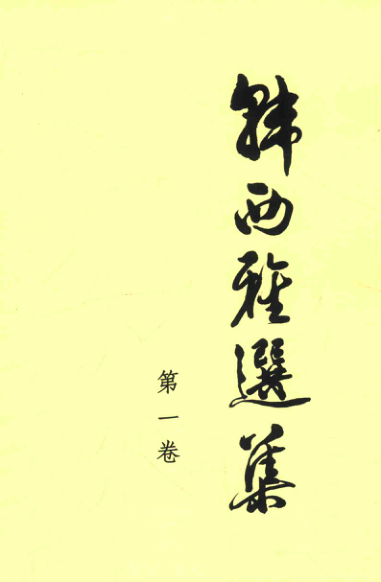 韩西雅選集
第一卷